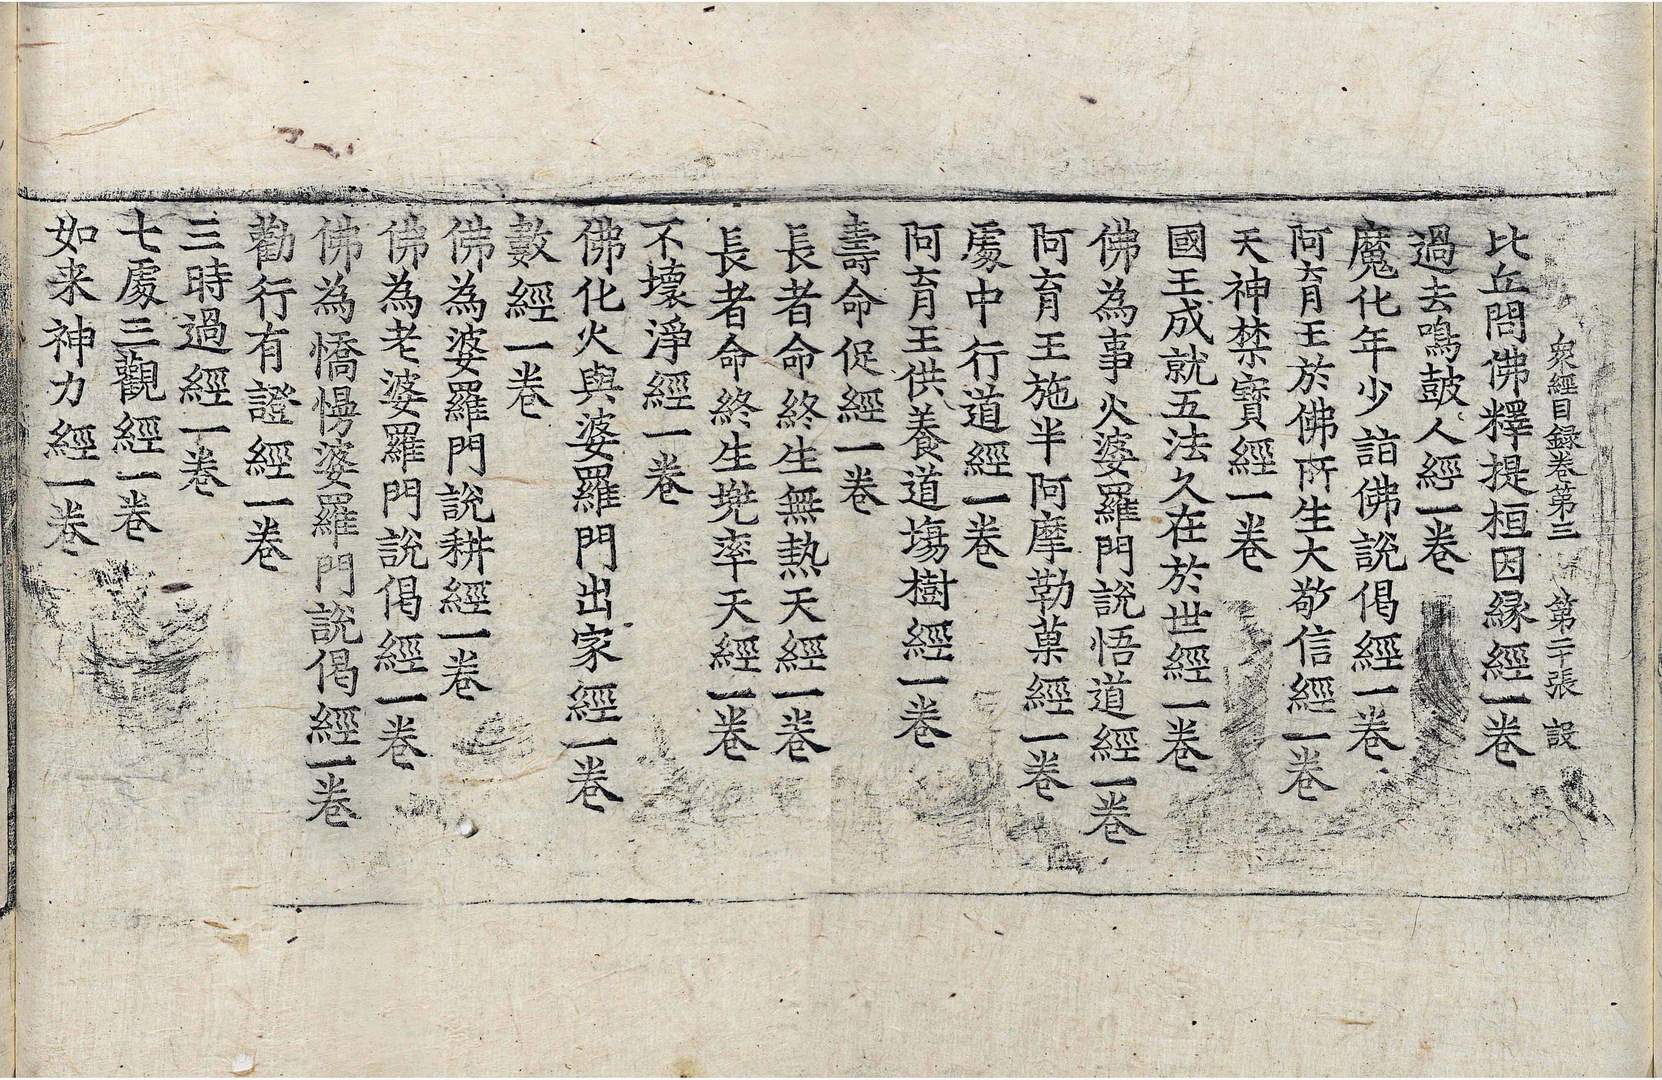 衆經目録卷第三　第二十張　設
比丘問佛釋提桓因縁經一卷
過去鳴皷人經一卷
魔化年少詣佛說偈經一卷
阿育王於佛所生大敬信經一卷
天神禁寳經一卷
國王成就五法久在於世經一卷
佛為事火婆羅門說悟道經一卷
阿育王施半阿摩勒菓經一卷
䖏中行道經一卷
阿育王供養道塲樹經一卷
壽命促經一卷
長者命終生無熱天經一卷
長者命終生兠率天經一卷
不壞淨經一卷
佛化火與婆羅門出家經一卷
數經一卷
佛為婆羅門說耕經一卷
佛為老婆羅門說偈經一卷
佛為憍慢婆羅門說偈經一卷
勸行有證經一卷
三時過經一卷
七䖏三觀經一卷
如来神力經一卷